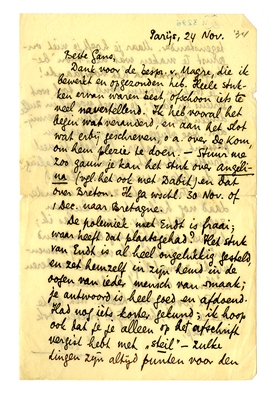 Parijs, 24 Nov. '34
Beste Gans,
Dank voor de besp. v. Magre, die ik
bewerkt en opgezonden heb. Heele stuk-
ken ervan waren best, ofschoon iets te
veel navertellend. Ik heb vooral het
begin wat veranderd, en aan het slot
wat erbij geschreven, o.a. over de Kom,
om hem plezier te doen. — Stuur me
zoo gauw je kan het stuk over Angeli-
na (vgl. het ook met Dabit) en dat
over Breton. Ik ga wschl. 30 Nov. of
1 Dec. naar Bretagne.
De polemiek met Endt is fraai;
waar heeft dat plaatsgehad? Het stuk
van Endt is al heel ongelukkig gesteld
en zet hemzelf in zijn hemd in de
oogen van ieder mensch van smaak;
je antwoord is heel goed en afdoend.
Had nog iets korter gekund; ik hoop
ook dat je je alleen op het afschrift
vergist hebt met „steil" — zulke
dingen zijn altijd punten voor den